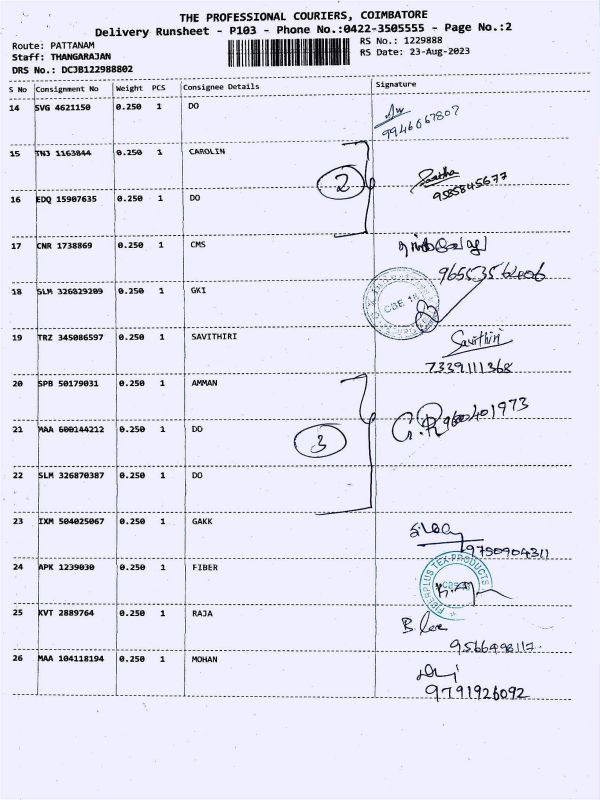 THE PROFESSIONAL COURIERS, COIMBATORE
Delivery Runsheet - P103 - Phone No.:0422-3505555 - Page No.:2
Route: PATTANAM RS No.: 1229888
Staff: THANGARAJAN RS Date: 23-Aug-2023
DRS No.: DCJB122988802
S No Consignment No Weight PCS Consignee Details Signature
14 SVG 4621150 0.250 1 DO
9946667807
15 TNJ 1163044 0.250 1 CAROLIN
2
Savitha
9585845677
16 EDQ 15907635 0.250 1 DO
17 CNR 1738869 0.250 1 CMS
CBE 18
18 SLM 326829209 0.250 1 GKI
19 TRZ 345086597 0.250 1 SAVITHIRI
Savithiri
7339111368
20 SPB 50179031 0.250 1 AMMAN
G.R 9600401973
21 MAA 600144212 0.250 1 DO
3
22 SLM 326870387 0.250 1 DO
23 IXM 504025067 0.250 1 GAKK
9750904311
24 APK 1239030 0.250 1 FIBER
FIBERPLUS TEX PRODUCTS
25 KVT 2889764 0.250 1 RAJA
9566498117
26 MAA 104118194 0.250 1 MOHAN
9791926092